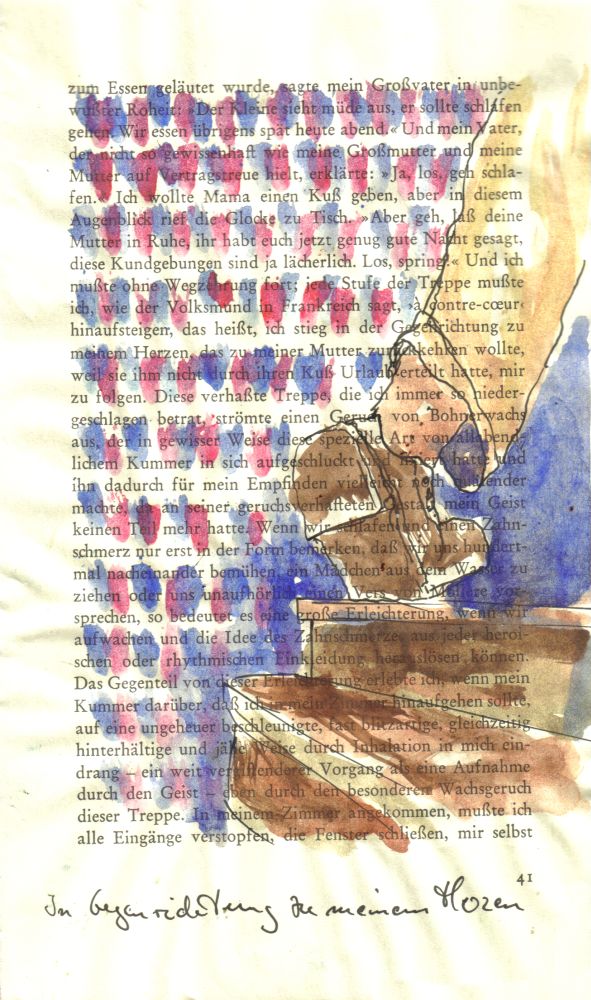 zum Essen geläutet wurde, sagte mein Großvater in unbe-
wußter Roheit: »Der Kleine sieht müde aus, er sollte schlafen
gehen. Wir essen übrigens spät heute abend.« Und mein Vater,
der nicht so gewissenhaft wie meine Großmutter und meine
Mutter auf Vertragstreue hielt, erklärte: »Ja, los, geh schla-
fen.« Ich wollte Mama einen Kuß geben, aber in diesem
Augenblick rief die Glocke zu Tisch. »Aber geh, laß deine
Mutter in Ruhe, ihr habt euch jetzt genug gute Nacht gesagt,
diese Kundgebungen sind ja lächerlich. Los, spring!« Und ich
mußte ohne Wegzehrung fort; jede Stufe der Treppe mußte
ich, wie der Volksmund in Frankreich sagt, ›à contre-cœur‹
hinaufsteigen, das heißt, ich stieg in der Gegenrichtung zu
meinem Herzen, das zu meiner Mutter zurückkehren wollte,
weil sie ihm nicht durch ihren Kuß Urlaub erteilt hatte, mir
zu folgen. Diese verhaßte Treppe, die ich immer so nieder-
geschlagen betrat, strömte einen Geruch von Bohnerwachs
aus, der in gewisser Weise diese spezielle Art von allabend-
lichem Kummer in sich aufgeschluckt und fixiert hatte und
ihn dadurch für mein Empfinden vielleicht noch quälender
machte, da an seiner geruchsverhafteten Gestalt mein Geist
keinen Teil mehr hatte. Wenn wir schlafen und einen Zahn-
schmerz nur erst in der Form bemerken, daß wir uns hundert-
mal nacheinander bemühen, ein Mädchen aus dem Wasser zu
ziehen oder uns unaufhörlich einen Vers von Molière vor-
sprechen, so bedeutet es eine große Erleichterung, wenn wir
aufwachen und die Idee des Zahnschmerzes aus jeder heroi-
schen oder rhythmischen Einkleidung herauslösen können.
Das Gegenteil von dieser Erleichterung erlebte ich, wenn mein
Kummer darüber, daß ich in mein Zimmer hinaufgehen sollte,
auf eine ungeheuer beschleunigte, fast blitzartige, gleichzeitig
hinterhältige und jähe Weise durch Inhalation in mich ein-
drang – ein weit vergiftenderer Vorgang als eine Aufnahme
durch den Geist – eben durch den besonderen Wachsgeruch
dieser Treppe. In meinem Zimmer angekommen, mußte ich
alle Eingänge verstopfen, die Fenster schließen, mir selbst
41
In Gegenrichtung zu meinem Herzen